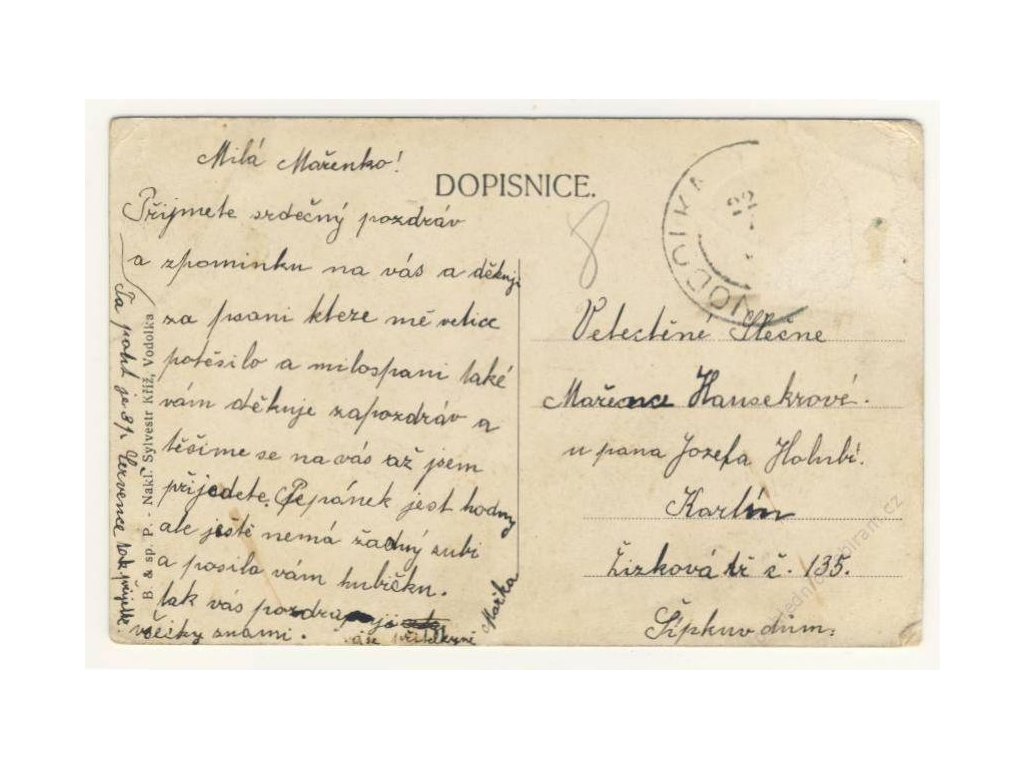 DOPISNICE.
Milá Mařenko!
Přijmete srdečný pozdráv
a zpominku na vás a děkuji
za psani ktere mě velice
potěšilo a milospani také
vám děkuje zapozdráv a
těšime se na vás až jsem
přijedete. Pepánek jest hodny
ale ještě nemá žádný zubi
a posila vám hubičku.
tak vás pozdravuje
všicky znami.
Mařka
Ta pout je 8. Července tak přijete.
B. & sp. P. - Nakl. Sylvestr Kříž, Vodolka
8
VODOLKA
Vetectěné Slečne
Mařence Hausekrové.
u pana Jozefa Holubi.
Karlín
Žizková tř č. 135.
Šipkuv dům.